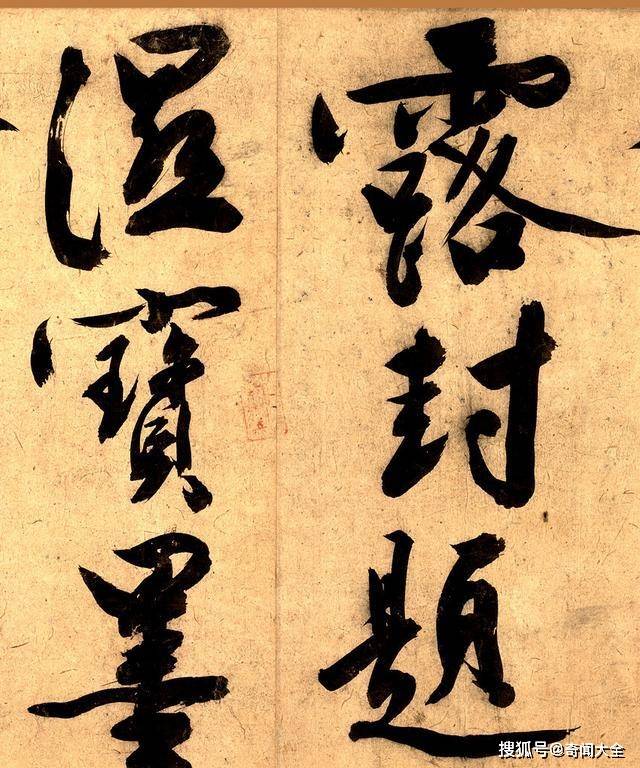 露封題
湿寶墨
搜狐号@奇闻大全